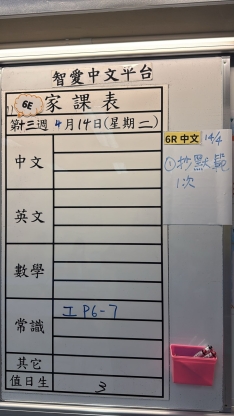 智愛中文平台
6E 家課表
第十三週 4月14日(星期二)
中文
英文
數學
常識 工 P6-7
其它
值日生 3
6R 中文 14/4
①抄默範
1次